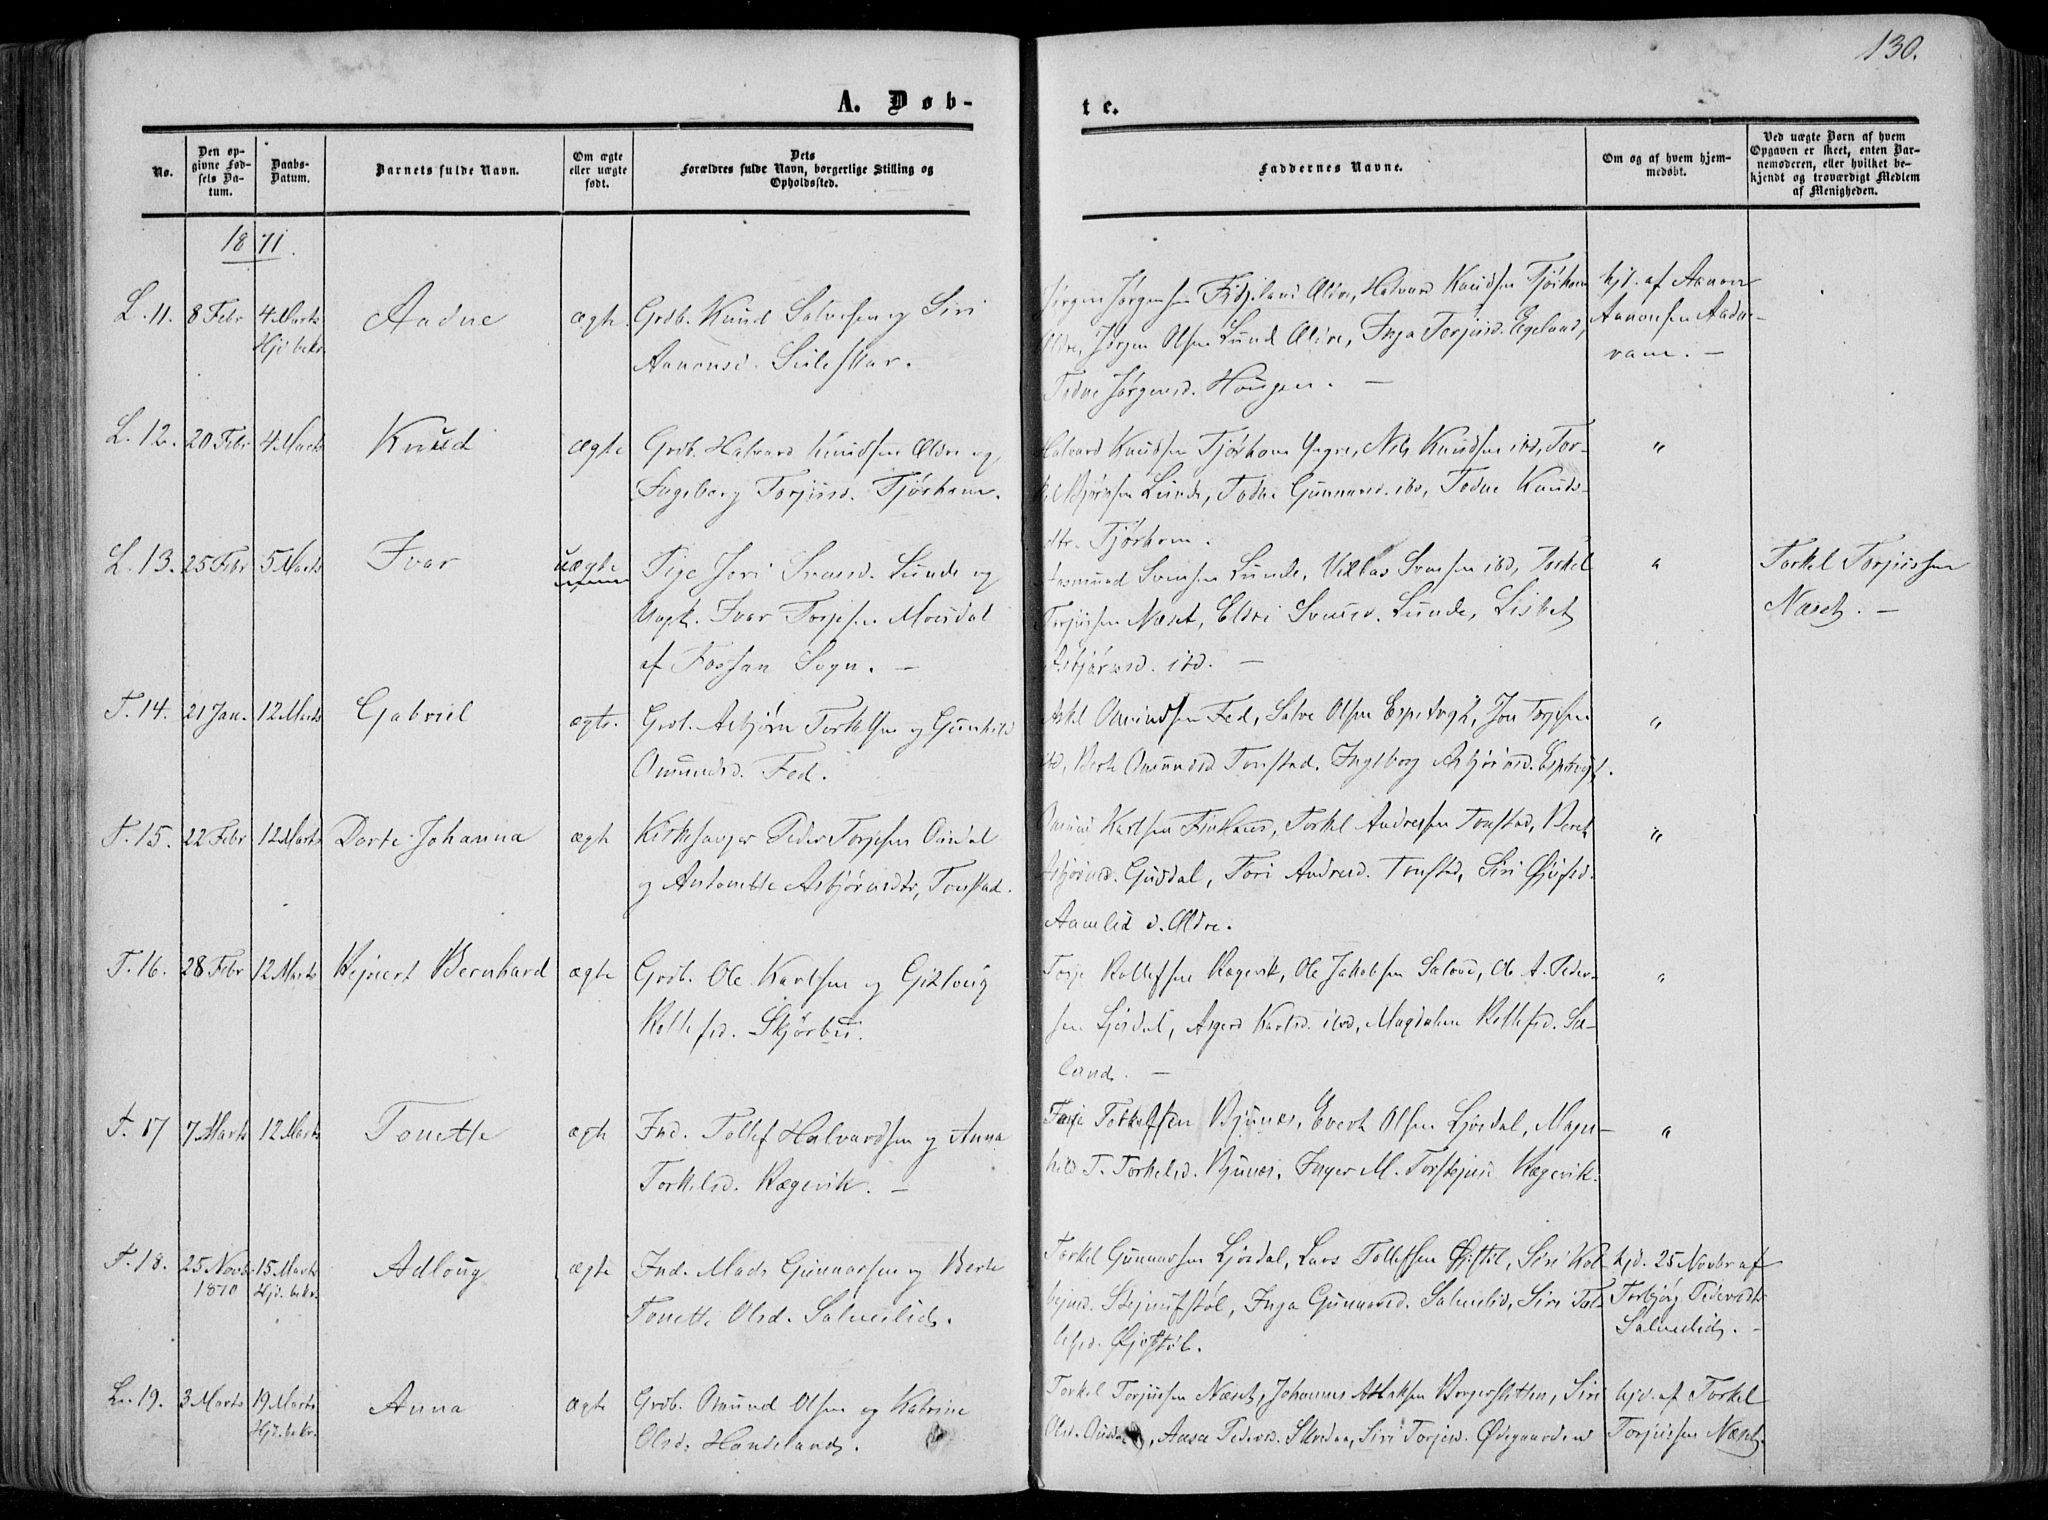 130.
A. Døb-
te.
No.
Den op-
givne Fød-
sels Da-
tum.
Daabs-
Datum.
Barnets fulde Navn.
Om ægte
eller uægte
født.
Dets
Forældres fulde Navn, borgerlige Stilling og
Opholdssted.
Faddernes Navne.
Om og af hvem hjem-
medøbt.
Ved uægte Børn af hvem
Opgaven er skeet, enten Bar-
nemoderen, eller hvilket be-
kjendt og troværdigt Medlem
af Menigheden.
1871.
L. 11. 8 Febr 4 Marts Aadne ægte Grdb. Knud Salvesen og Siri
Hjd. bekr.
Aanensd. Suleskar.
Jørgen Jørgensen Fidjeland Ældre, Halvard Knudsen Tjørhom
Ældre, Jørgen Olsen Lund Ældre, Inga Terjesd. Egeland,
Todne Jørgensd. Haugen. —
hjd. af Aanon
Aanonsen Aadne-
vam. —
L. 12. 20 Febr 4 Marts Knud ægte Grdb. Halvard Knudsen Ældre og
Ingeborg Torjusd. Tjørhom.
Halvard Knudsen Tjørhom Yngre, Nils Knudsen ibd, Tor-
kel Bjørnsen Lunde, Todne Gunnarsd. ibd, Todne Knuds-
dtr. Tjørhom.
"
L. 13. 25 Febr 5 Marts Ivar uægte Pige Jori Svensd. Lunde og
Ungk. Ivar Torjesen Mousdal
af Fossan Sogn. —
Aasmund Svensen Lunde, Niklas Svensen ibd, Torkel
Torjussen Næset, Eldri Svensd. Lunde, Lisbet
Asbjørnsd. ibd. —
"
Torkel Torjussen
Næset. —
T. 14. 21 Jan. 12 Marts Gabriel ægte. Grdb. Asbjørn Torkelsen og Gunhild
Omundsd. Fed.
Askel Omundsen Fed, Salve Olsen Espetvegt, Jon Torjesen
ibd, Berte Omundsd Tonstad. Ingeborg Asbjørnsd. Espetvegt.
"
T. 15. 22 Febr 12 Marts Dorte Johanna ægte Kirkesanger Peder Torjesen Ousdal
og Antonette Asbjørnsdtr, Tonstad.
Omund Karlsen Finhaus, Torkel Andressen Tonstad, Beret
Asbjørnsd. Gusdal, Tori Andresd. Tonstad, Siri Øjufsd.
Aamlid d. Ældre.
"
T. 16. 28 Febr 12 Marts Rejnert Bernhard ægte Grdb. Ole Karlsen og Gidlaug
Rollefsd. Skjørbu.
Torje Rollefsen Rægevik, Ole Jakobsen Salond, Ole A. Peder-
sen Ljosdal, Asgerd Karlsd. ibd, Magdalen Rollefsd. Sæ-
land. —
"
T. 17 7 Marts 12 Marts Tonette ægte Ind. Tollef Halvardsen og Anna
Torkelsd. Rægevik. —
Torje Torkelsen Bjunes, Evert Olsen Ljosdal, Magn-
hild T. Torkelsd. Bjunes, Inger M. Torkjeld Rægevik.
"
T. 18. 25 Novbr 15 Marts Adloug ægte Ind. Mads Gunnarsen og Berte
1870 Hjd. bekr.
Tonette Olsd. Salmelid.
Torkel Gunnarsen Ljosdal, Lars Tollefsen Øjestøl, Siri Kol-
bejnsd. Stejnufstøl, Inga Gunnarsd. Salmelid, Siri Tol-
lefsd. Øjestøl.
hjd. 25 Novbr af
Torbjørg Pedersdtr
Salmelid. —
L. 19. 3 Marts 19 Marts Anna ægte Grdb. Omund Olsen og Katrine
Hjd. bekr.
Olsd. Handeland.
Torkel Torjussen Næset, Johannes Atlaksen Borgersletten, Siri
Olsd. Ousdal, Aasa Pedersd. Skredaa, Siri Torjesd. Ødegaarden
hjd. af Torkel
Torjussen Næset.